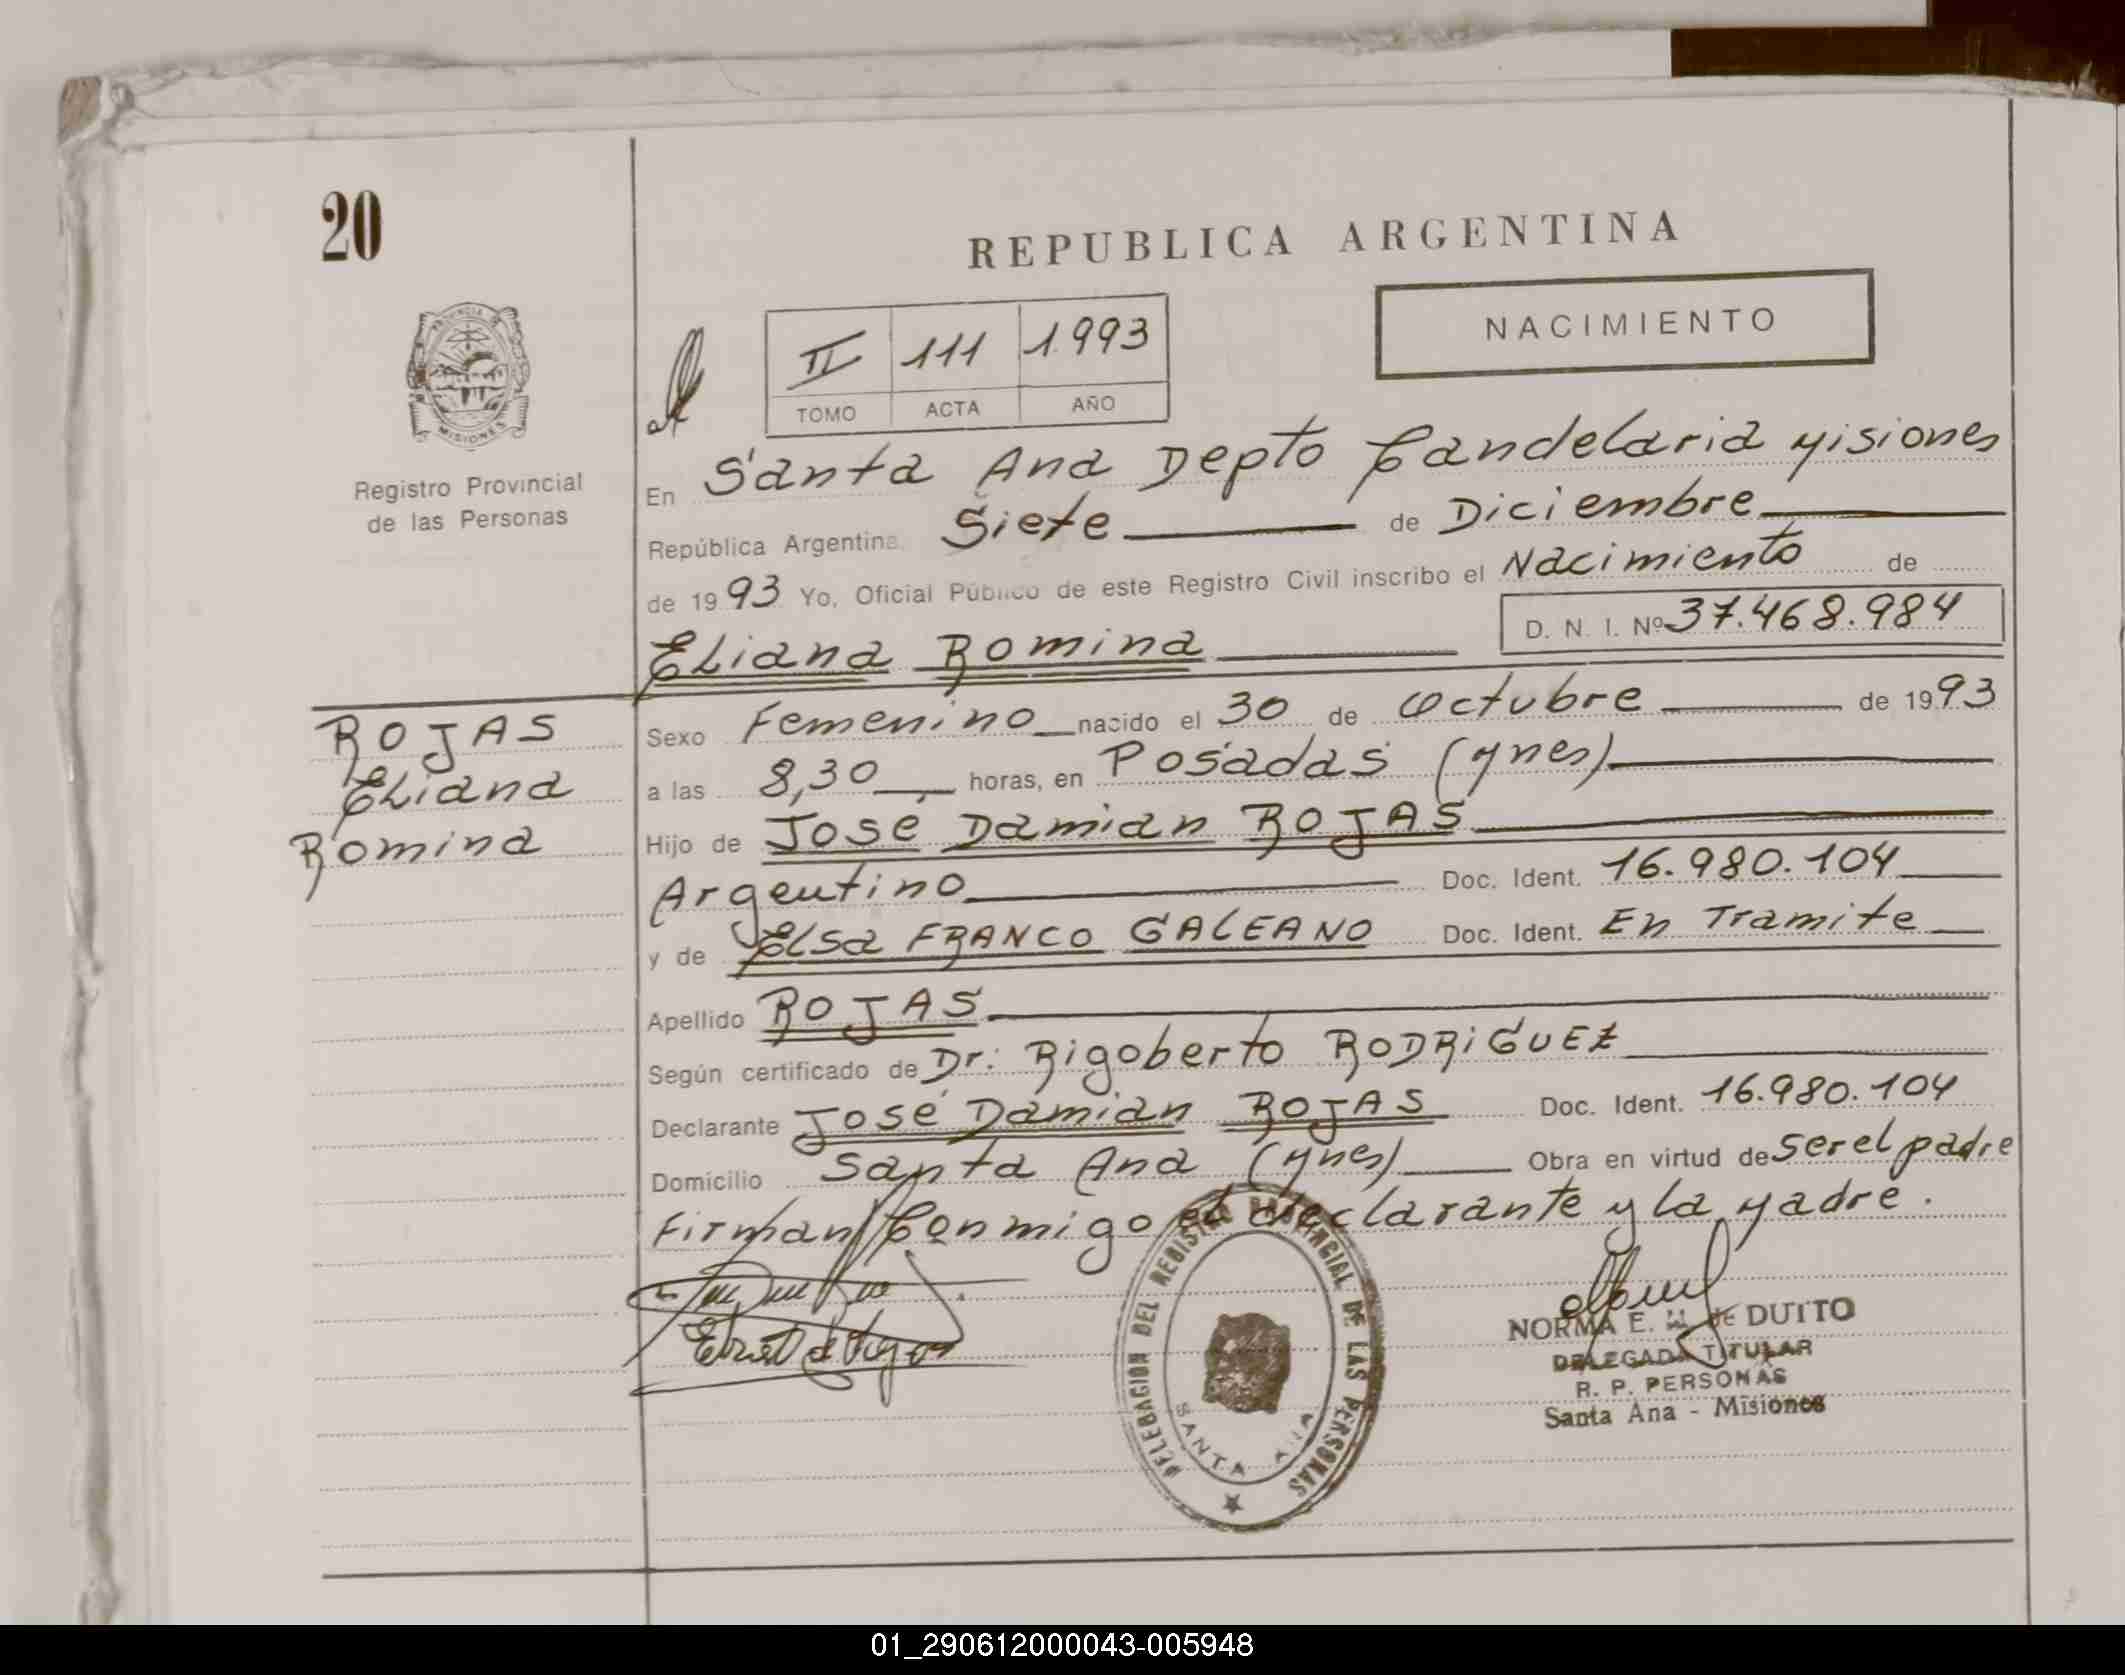 20
REPUBLICA ARGENTINA
NACIMIENTO
II 111 1993
TOMO ACTA AÑO
PROVINCIA DE
MISIONES
Registro Provincial
de las Personas
En Santa Ana Depto Candelaria Misiones
República Argentina, Siete de Diciembre
de 1993 Yo, Oficial Público de este Registro Civil inscribo el Nacimiento de
D. N. I. Nº 37.468.984
Eliana Romina
ROJAS
Eliana
Romina
Sexo Femenino nacido el 30 de Octubre de 1993
a las 8,30 horas, en Posadas (Mnes)
Hijo de José Damian ROJAS
Argentino Doc. Ident. 16.980.104
y de Elsa FRANCO GALEANO Doc. Ident. En Tramite
Apellido ROJAS
Según certificado de Dr: Rigoberto RODRIGUEZ
Declarante José Damian ROJAS Doc. Ident. 16.980.104
Domicilio Santa Ana (Mnes) Obra en virtud de Ser el padre
Firman Conmigo el declarante y la Madre.
DELEGACION DEL REGISTRO PROVINCIAL DE LAS PERSONAS
SANTA ANA
NORMA E. M. de DUTTO
DELEGADA TITULAR
R. P. PERSONAS
Santa Ana - Misiones
01_290612000043-005948